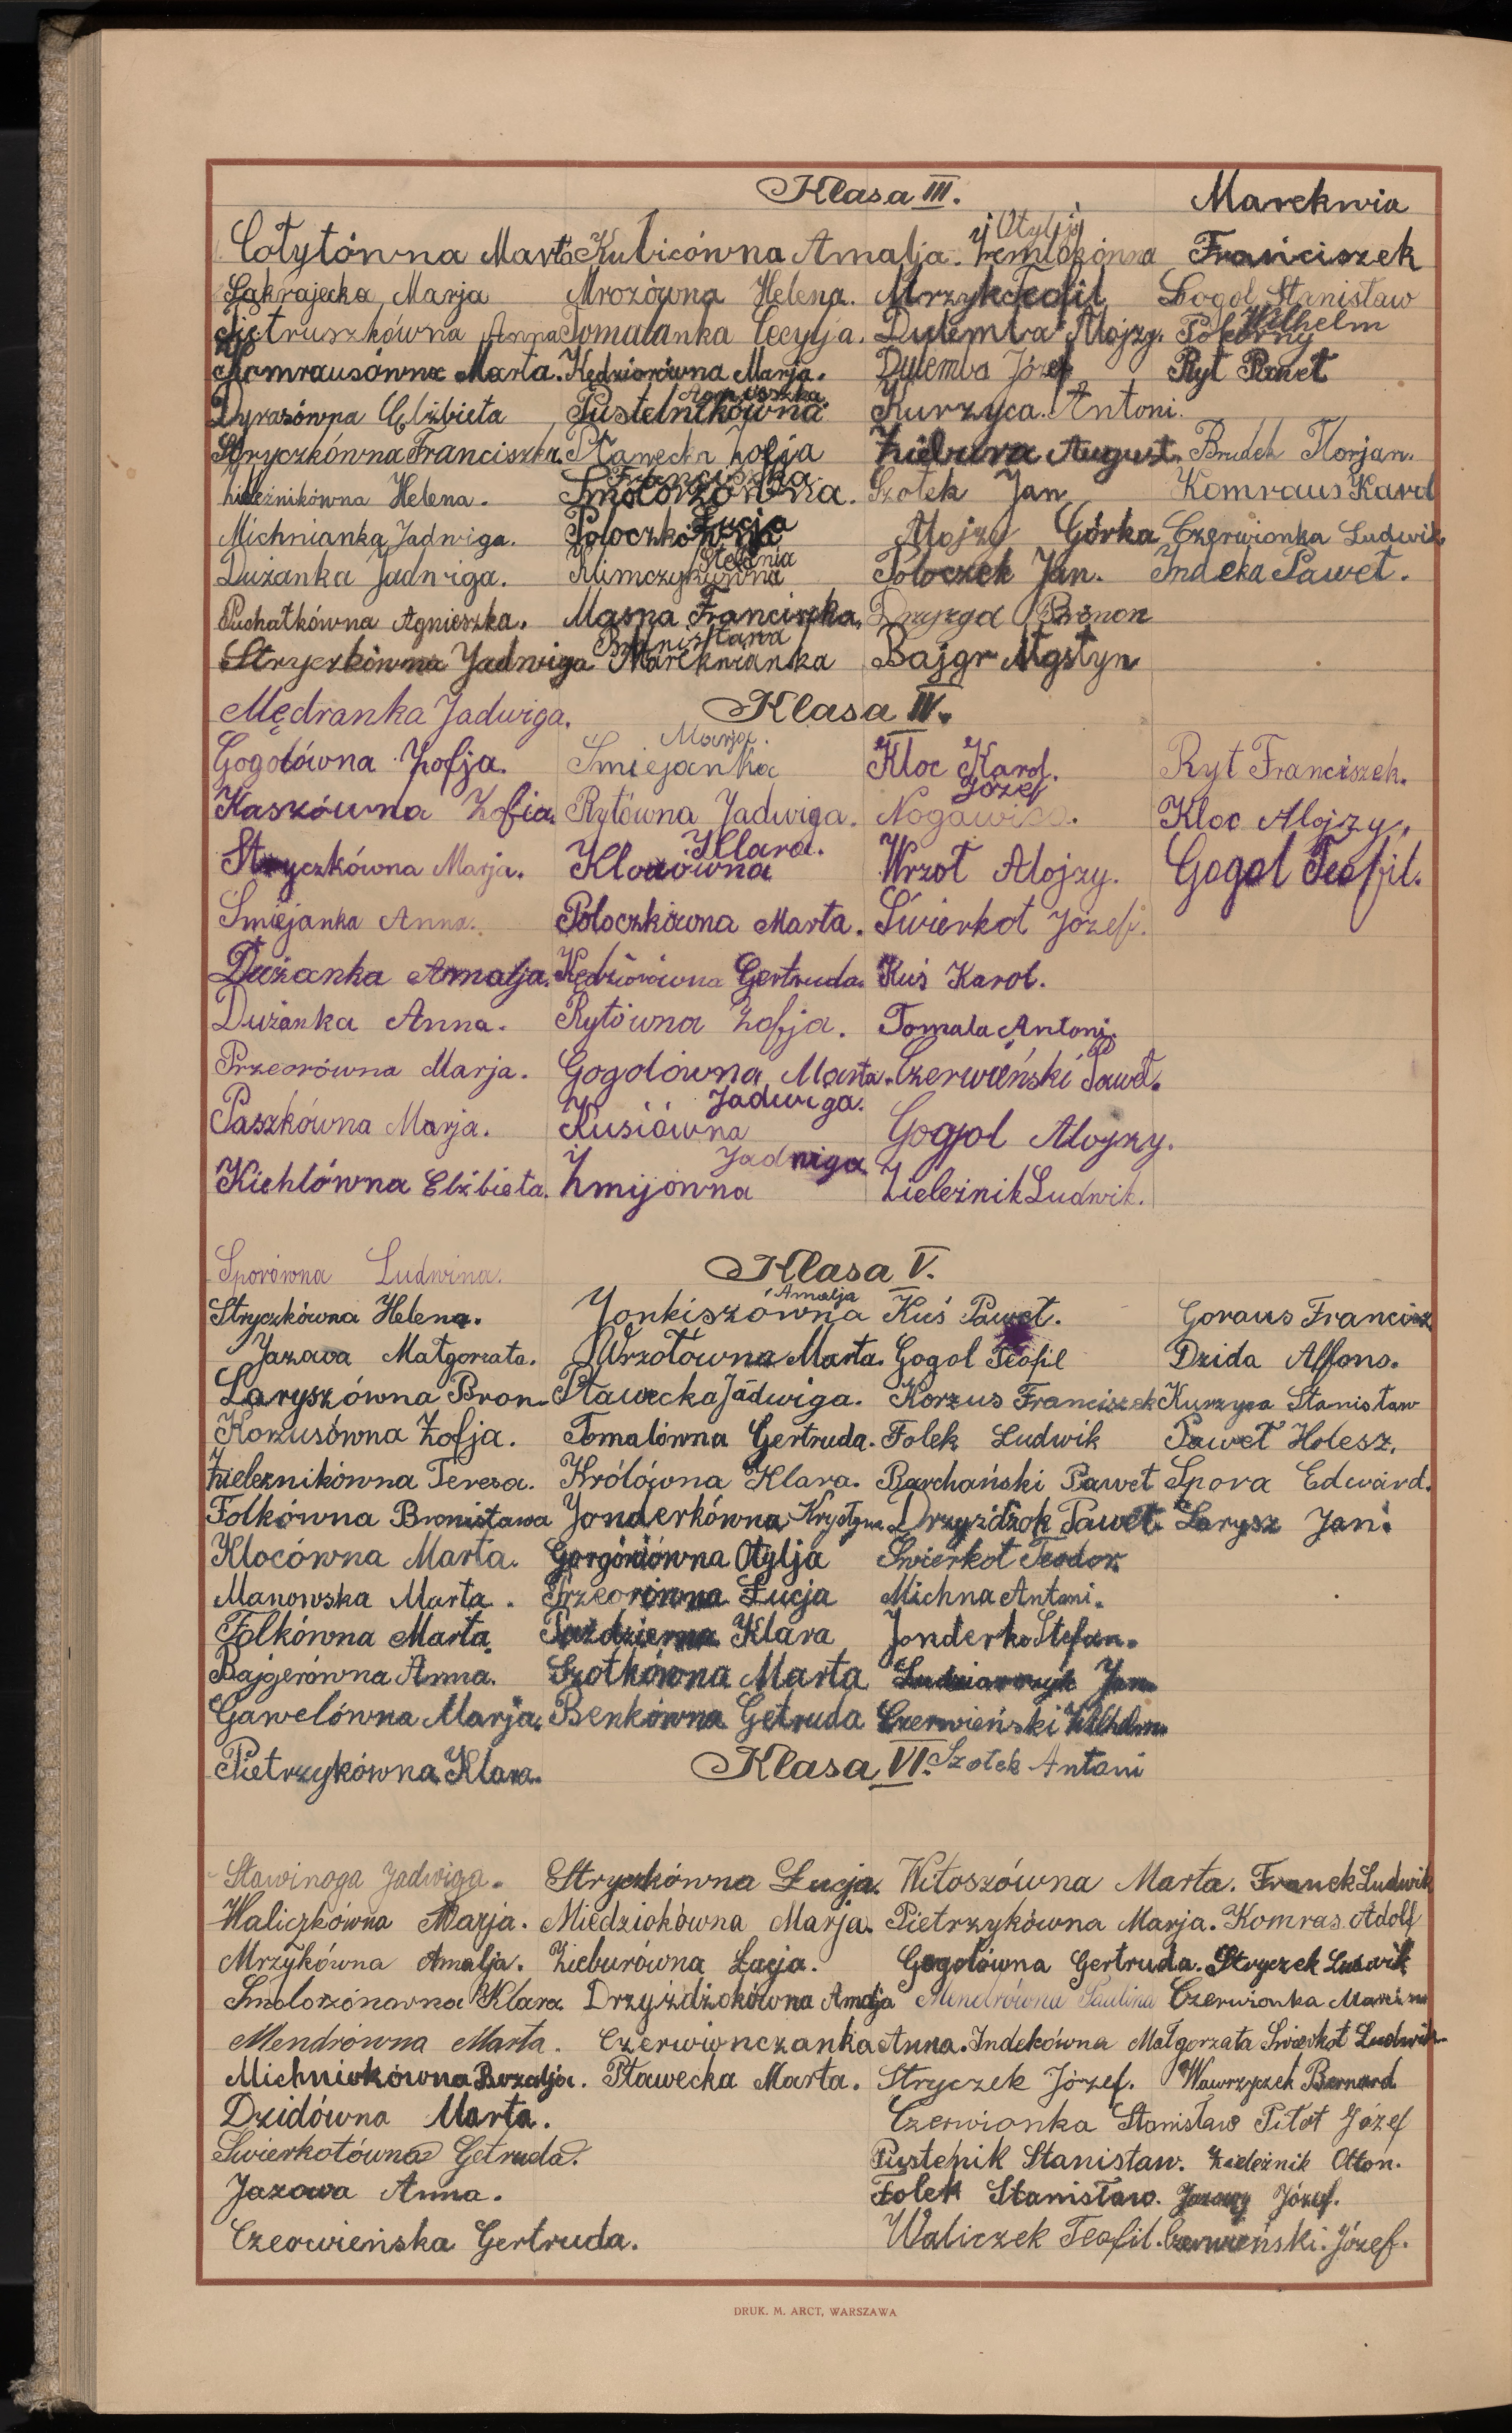 Klasa III. Marekwia
Otylja
Cołytówna Marta Kubicówna Amalja. Franciszek
Zakrajecka Marja Mrozówna Helena. Mrzyk Teofil Gogol Stanisław
Pietruszkówna Anna Tomalanka Cecylja. Dulemba Alojzy. Pokorny Wilhelm
Komrausówna Marta. Kędziorówna Marja. Dulemba Józef Ryt Paweł
Dyrasówna Elżbieta Pustelnikówna Agnieszka Kurzyca Antoni.
Stryczkówna Franciszka. Pławecka Zofja Ziebura August. Brudek Florjan.
Zieleźnikówna Helena. Smolorzówna Franciszka. Szołek Jan Komraus Karol
Michnianka Jadwiga. Poloczkówna Łucja Alojzy Górka Czerwionka Ludwik.
Dużanka Jadwiga. Klimczykówna Stefania Poloczek Jan. Indeka Paweł.
Puchałkówna Agnieszka. Masna Franciszka. Drzyzga Brunon
Stryczkówna Jadwiga Marekwianka Bronisława Bajgr Agstyn
Mędranka Jadwiga. Klasa IV.
Gogolówna Zofja. Smiejanka Marja. Kloc Karol. Ryt Franciszek.
Kaszówna Zofia. Rytówna Jadwiga. Nogawica Józef. Kloc Alojzy.
Stryczkówna Marja. Klocówna Klara. Wrzoł Alojzy. Gogol Teofil.
Smiejanka Anna. Poloczkówna Marta. Świerkot Józef.
Dużanka Amalja. Kędziorówna Gertruda. Kuś Karol.
Dużanka Anna. Rytówna Zofja. Tomala Antoni.
Przeorówna Marja. Gogolówna Marta. Czerwieński Paweł.
Paszkówna Marja. Kusiówna Jadwiga. Gogol Alojzy.
Kichlówna Elżbieta. Żmijówna Jadwiga Zieleźnik Ludwik.
Sporówna Ludwina. Klasa V.
Stryczkówna Helena. Jonkiszówna Amalja Kuś Paweł. Goraus Francisz
Jazowa Małgorzata. Wrzołówna Marta. Gogol Teofil Dzida Alfons.
Laryszówna Bron. Pławecka Jadwiga. Korzus Franciszek Kurzyca Stanisław
Korzusówna Zofja. Tomalówna Gertruda. Folek Ludwik Paweł Holesz.
Zieleznikówna Teresa. Królówna Klara. Barchański Paweł Spora Edward.
Folkówna Bronisława Jonderkówna Krystyna Drzyżdżok Paweł. Larysz Jan.
Klocówna Marta. Gorgoniówna Otylja Swierkot Teodor.
Manowska Marta. Przeorówna Łucja Michna Antoni.
Folkówna Marta. Październa Klara Jonderko Stefan.
Bajgerówna Anna. Szołkówna Marta Jan
Gawelówna Marja. Benkówna Getruda Czerwieński Wilhelm
Pietrzykówna Klara. Klasa VI. Szołek Antoni
Sławinoga Jadwiga. Stryczkówna Łucja. Witoszówna Marta. Franek Ludwik
Waliczkówna Marja. Miedziokówna Marja. Pietrzykówna Marja. Komras Adolf
Mrzykówna Amalja. Zieburówna Łucja. Gogolówna Gertruda. Stryczek Ludwik
Smolorzónowna Klara. Drzyżdżokówna Amalja Mendrówna Paulina Czerwionka
Mendrówna Marta. Czerwionczanka Anna. Indekówna Małgorzata Swierkot Ludwik
Michniokówna Rozalja. Pławecka Marta. Stryczek Józef. Wawrzyczek Bernard
Dzidówna Marta. Czerwionka Stanisław Pitot Józef
Swierkotówna Getruda. Pustelnik Stanisław. Zieleźnik Otton.
Jazowa Anna. Folek Stanisław. Jazowy Józef.
Czerwieńska Gertruda. Waliczek Teofil. Czerwieński. Józef.
DRUK. M. ARCT, WARSZAWA